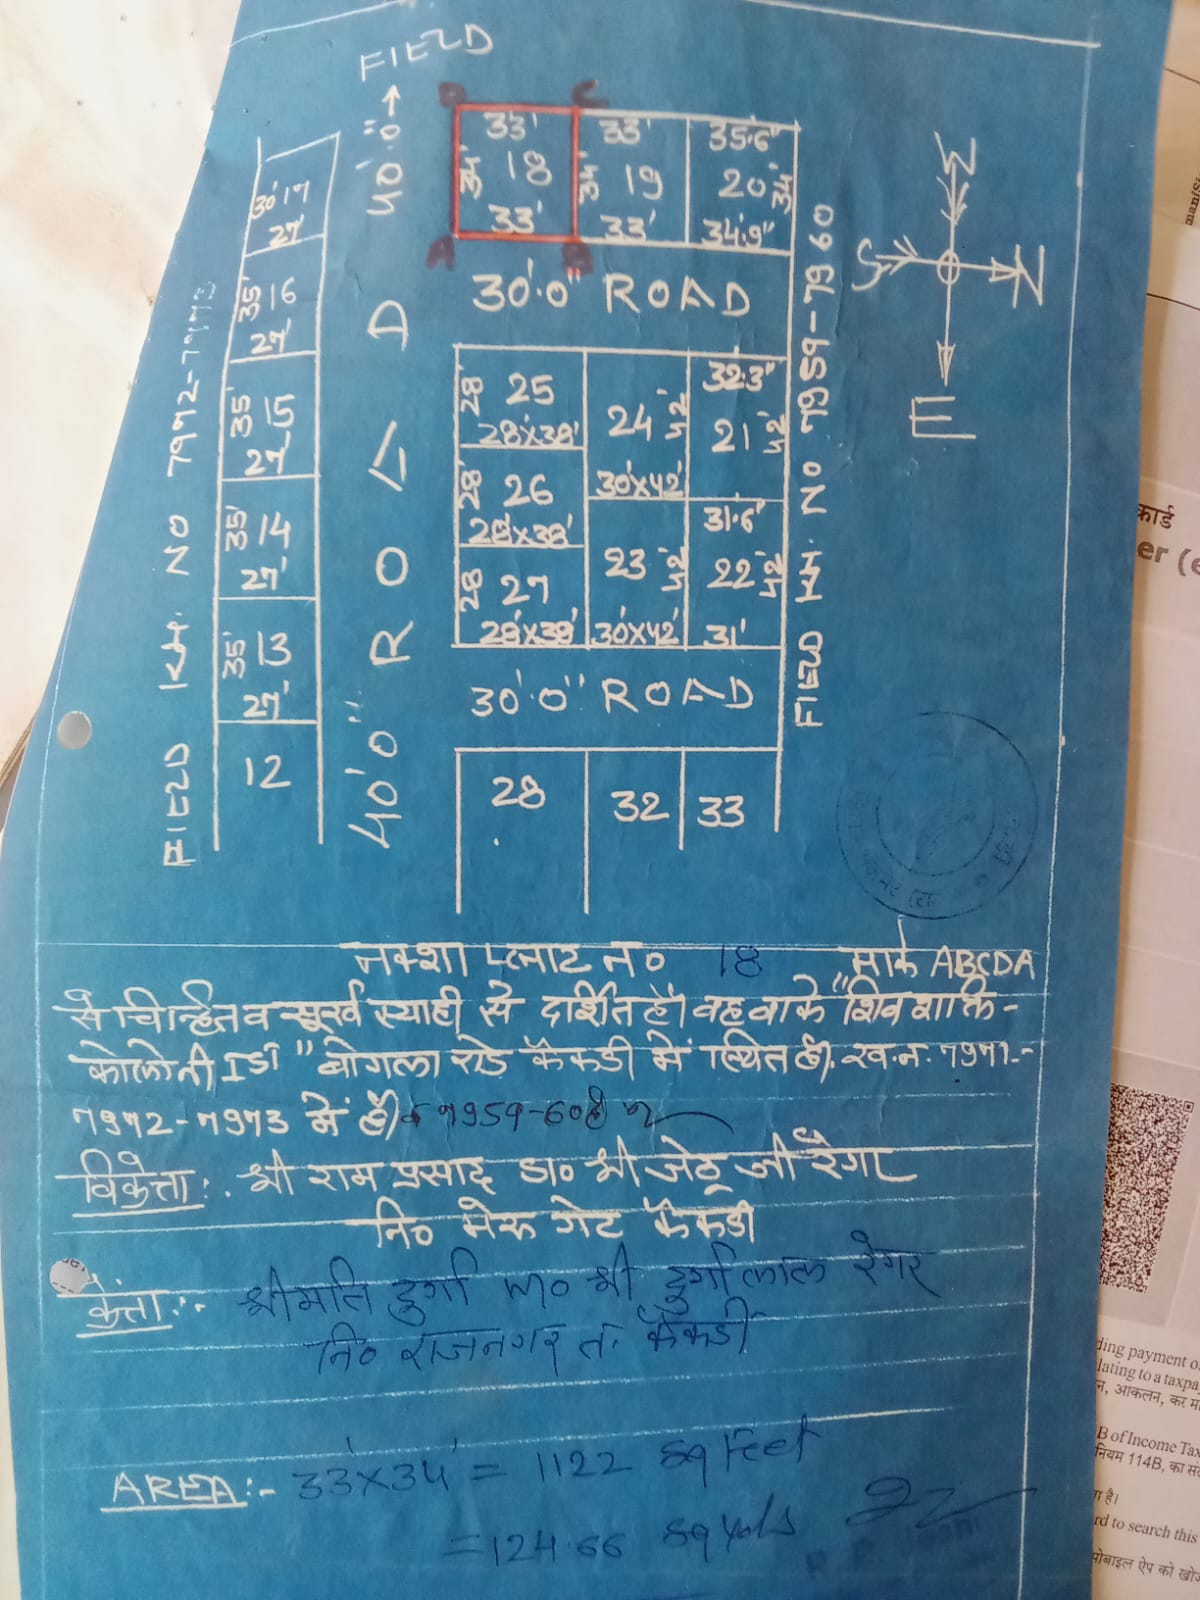 FIELD
40'.0"
33' 33' 35.6"
34' 18 34' 19 20 34'
33' 33' 34'.9"
D C
A B
30' 17
27'
35' 16
27'
35' 15
27'
35' 14
27'
35' 13
27'
12
FIELD KH. NO 7972-7973
40'0" ROAD
30'.0" ROAD
28' 25
28'X38'
28' 26
28'X38'
28' 27
28'X38'
24 42'
30'X42'
23 42'
30'X42'
32.3"
21 42'
31.6"
22 42'
31'
30'.0" ROAD
28 32 33
FIELD KH. NO 7959-7960
W
S N
E
नक्शा प्लाट न० 18 मार्क ABCDA
से चिन्हित व सूर्ख स्याही से दर्शित है। वह वाके "शिव शक्ति-
कोलोनी Ist" बोगला रोड केकडी में स्थित है। ख.न. 7971-
7972-7973 में है। व 7959-60 है
विक्रेता:- श्री राम प्रसाद S/o श्री जेठू जी रैगर
नि० भेरू गेट केकडी
क्रेता:- श्रीमति दुर्गा W/o श्री दुर्गालाल रेगर
नि० राजनगर त. केकडी
AREA:- 33'X34' = 1122 sq Feet
=124.66 sq yds
कार्ड
er (e
ding payment o
lating to a taxpa
न, आकलन, कर
B of Income Tax
नियम 114B, का
rd to search this
मोबाइल ऐप को